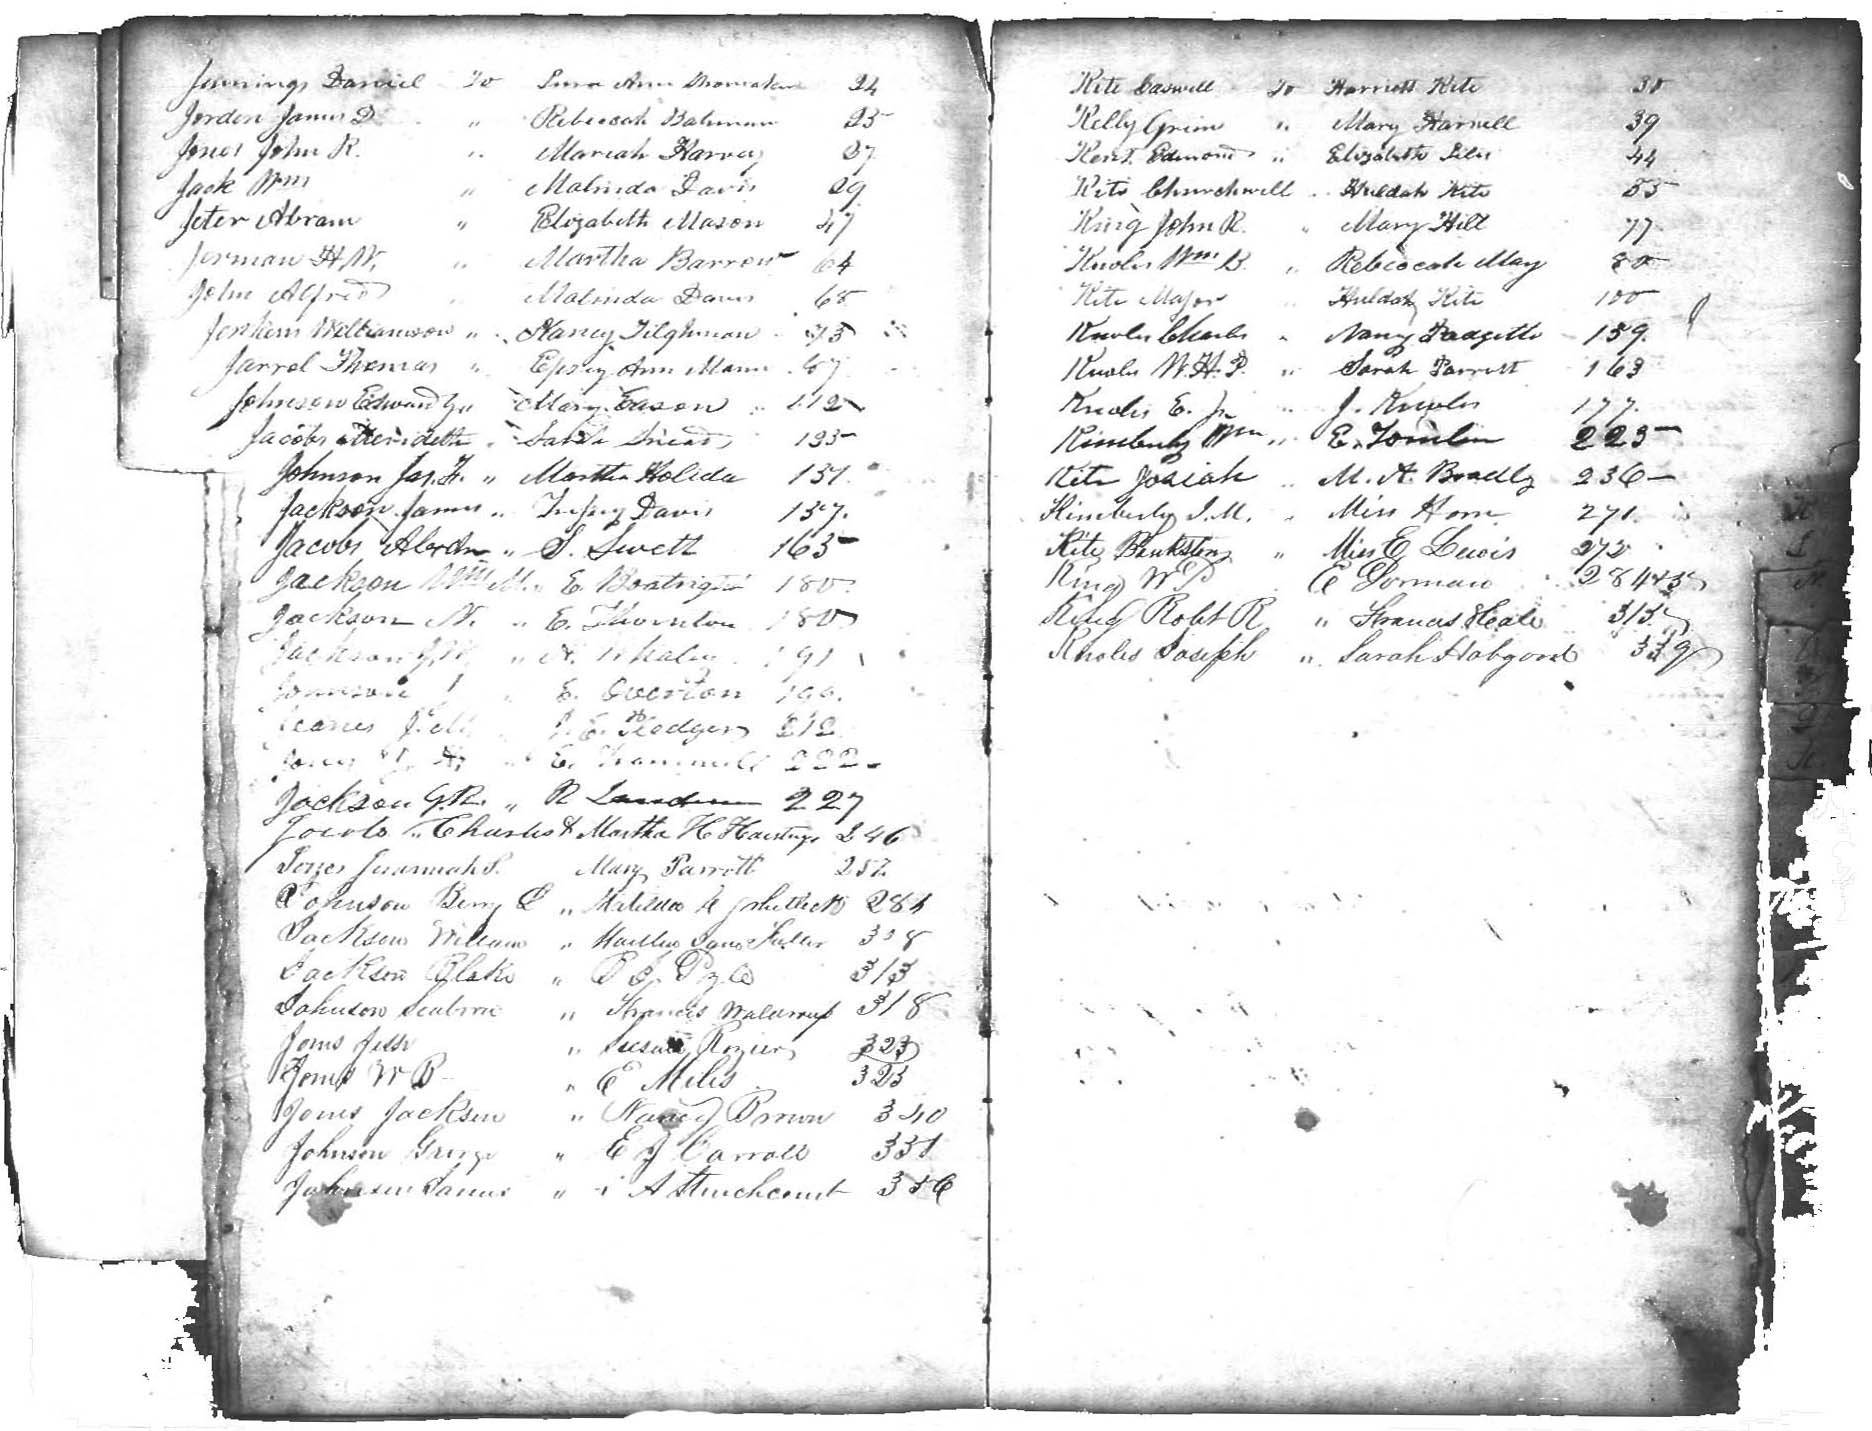 Jennings Daniel To Ann 24
Jorden James D " Rebeccah Bateman 25
Jones John R. " Mariah Harvey 37
Jack Wm " Malinda Davis 29
Jeter Abram " Elizabeth Mason 47
Jerman H W, " Martha Barrow 64
John Alfred " Malinda Davis 68
Jenkins Williamson " Nancy Tilghman 73
Jarrel Thomas " Epsey Ann Mann 87
Johnson Edward " Mary Eason " 112
Jacobs Merideth " Snead 125
Johnson Jas. " Martha Holida 131
Jackson James " Davis 137.
Jacobs " S. Swett 163
Jackson Wm M. " E. Boatright 180
Jackson N. " E. Thornton 180
Jackson " Whaley 191
Johnson J " E. Overton 190.
E. Hodges 212
Jones " E. Trammell 222
Jackson G.R. " R 227
Jacobs " Charles & Martha H Hastings 246
Jones Jeremiah S. Mary Parrott 252
Johnson Berry " Matilda 284
Jackson William " Jane Fuller 308
Jackson Blake " Pyle 313
Johnson Seaborn " Francis Waldrup 318
Jones Jesse " Susan Rozier 323
Jones W B " E Miles 323
Jones Jackson " Nancy Brown 340
Johnson George " E J Carroll 351
Johnson James " A Stinchcomb 356
Kite Caswell To Harriett Kite 30
Kelly Grim " Mary Harrell 39
Kent Edmond " Elizabeth 44
Kite Churchwell " Huldah Kite 55
King John R. " Mary Hill 77
Knoles Wm B. " Rebeccah May 80
Kite Major " Huldah Kite 100
Knoles Charles " Nancy Padgett 159.
Knoles W.H.P. " Sarah Parrott 163
Knoles E. Jr " J. Knoles 177.
Kimberly Wm " E. Tomlin 225
Kite Josiah " M. A. Bradly 236
Kimberly I. M. " Miss Horn 271.
Kite Bankston " Miss E Lewis 272
King W P E Gorman 284
King Robt R " Francis Heale 313
Knoles Joseph " Sarah Hobgood 339